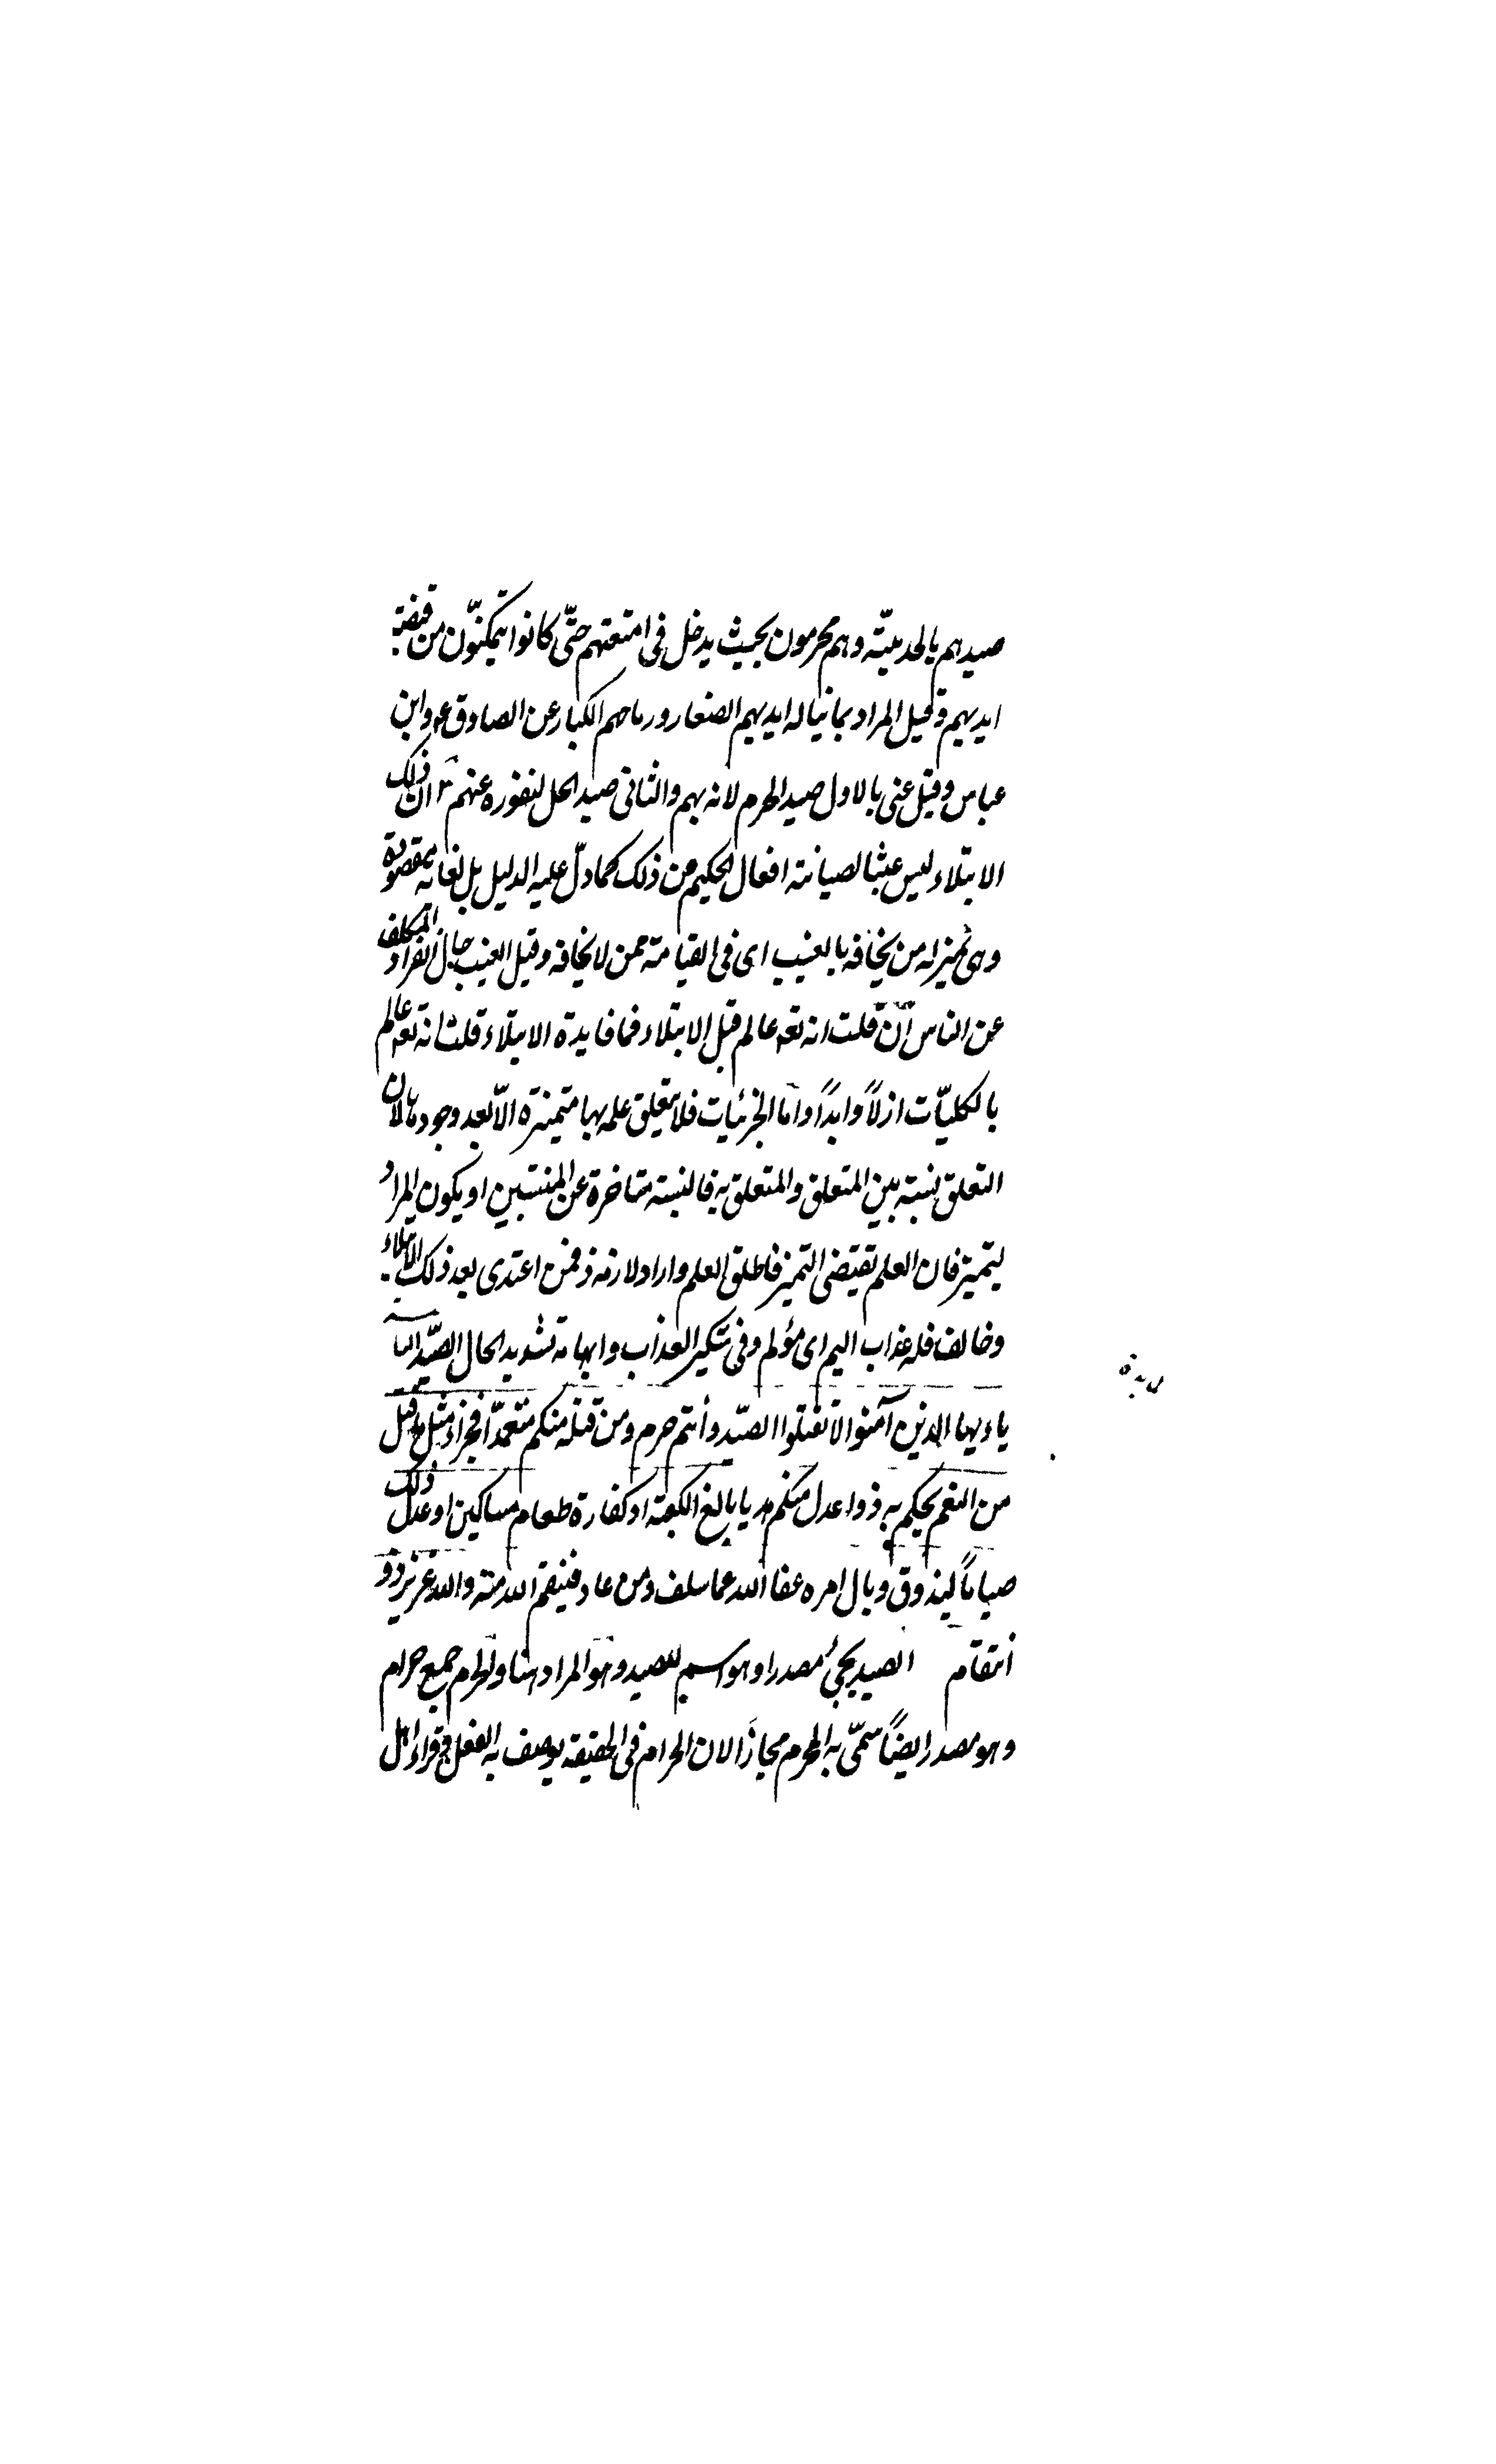 صيدهم بالحديبيّة وهم محرمون بحيث يدخل فى امتعتهم حتّى كانوا يتمكنّون من قبضة
ايديهم وقيل المراد بما يناله ايديهم الصغار ورماحهم الكبار عن الصادق ع وابن
عباس وقيل عنى بالاول صيد الحرم لانه بهم والثانى صيد الحل لنفوره عنهم ٢ ان ذلك
الابتلاء ليس عبثا لصيانة افعال الحكيم من ذلك كما دلّ عليه الدليل بل لغاية مقصودة
وهى تميز له من يخافه بالغيب اى فى القيامة ممن لا يخافه وقيل الغيب حال انفراد المكلف
عن الناس ان قلت انه تعه عالم قبل الابتلاء فما فايدة الابتلاء قلت انه تعه عالم
بالكليّات ازلاً وابدًا واما الجزئيات فلا يتعلق علمه بها متميزة الّا بعد وجودها لان
التعلق نسبة بين المتعلق والمتعلق به فالنسبة متاخرة عن المنتسبين او يكون المراد
ليتميز فان العلم يقتضى التميز فاطلق العلم واراد لازمه ذ فمن اعتدى بعد ذلك الابتلاء
وخالف فله عذاب اليم اى مؤلم وفى تنكير العذاب وابهامه تشديد لحال الصّيد
ياءيها الذين آمنوا لا تقتلوا الصّيد وأنتم حرم ومن قتله منكم متعمدّا فجزاء مثل ما قتل
من النعم يحكم به ذوا عدل منكم هديا بالغ الكعبة او كفارة طعام مساكين او عدل ذلك
صياماً ليذوق وبال امره عفا الله عما سلف ومن عاد فينتقم الله منه والله عزيز ذو
انتقام الصيد يجئ مصدرا وهو اسم للصيد وهو المراد هنا والحرم جمع حرام
وهو مصدر ايضاً سمّى به المحرم مجازًا لان الحرام فى الحقيقة يوصف به الفعل وقراء اهل